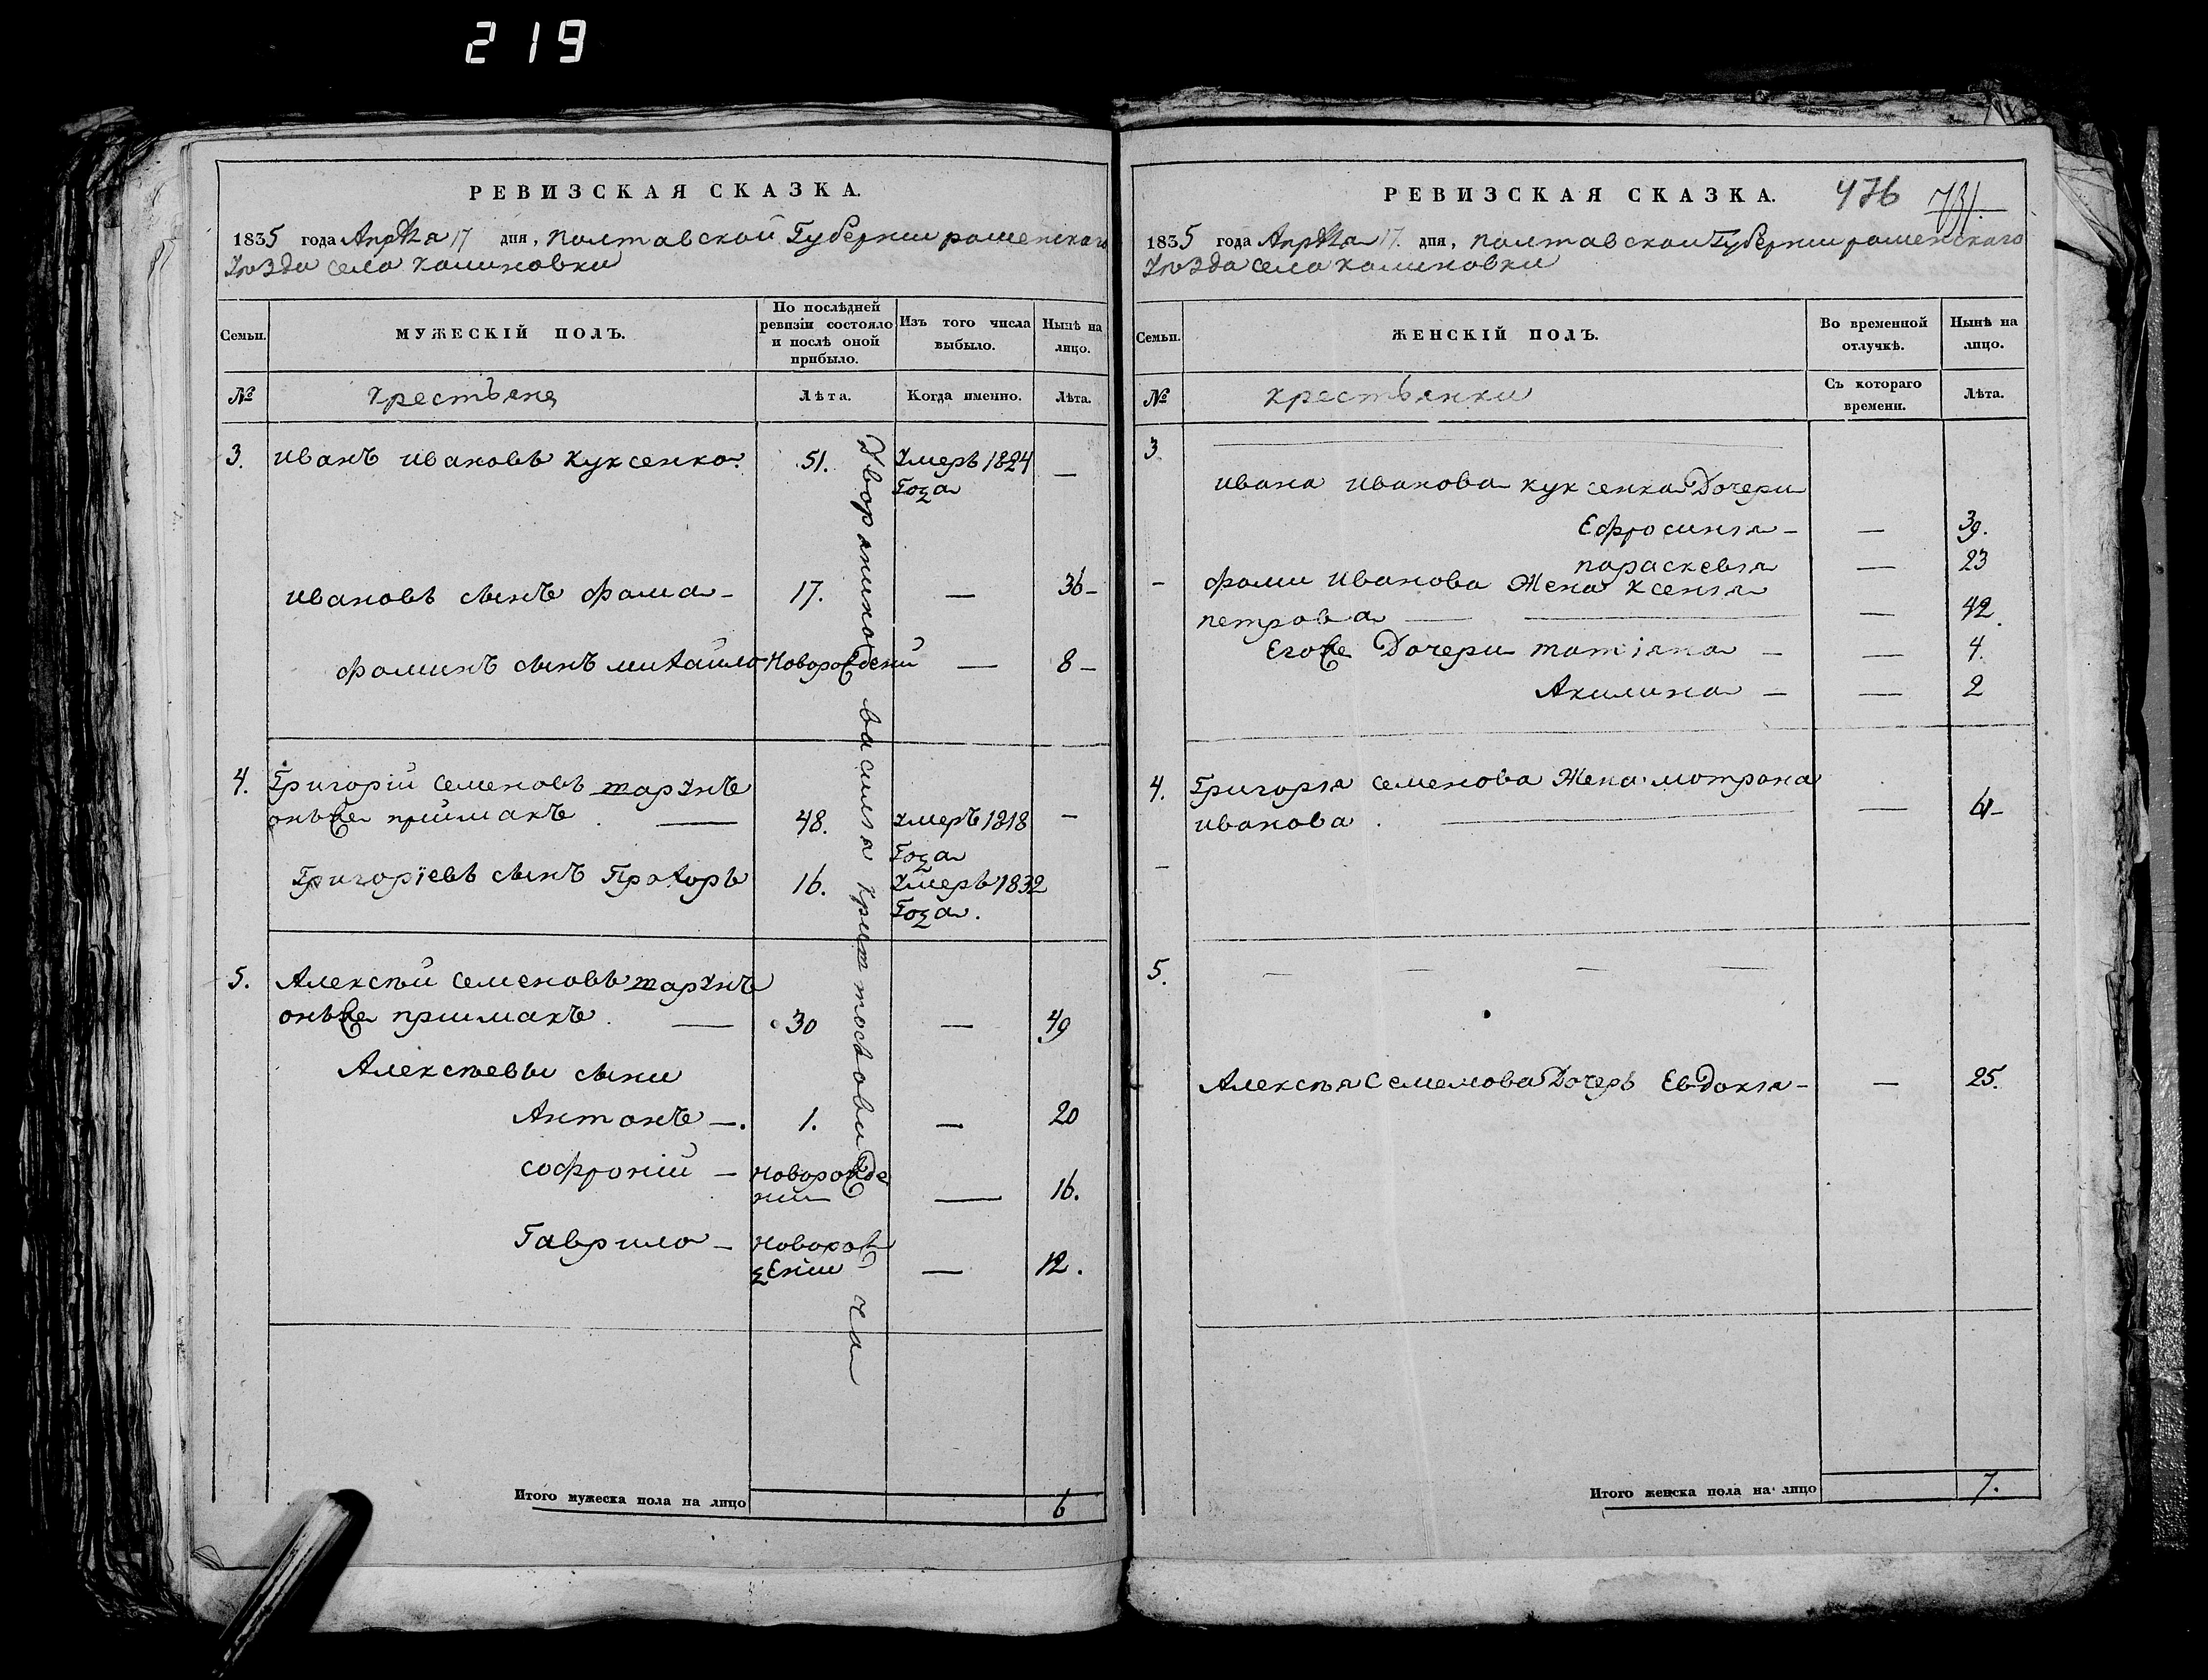 219
РЕВИЗСКАЯ СКАЗКА.
1835 года Апрѣля 17 дня, полтавской Губерніи роменского
уѣзда села калиновки
Семьи.
МУЖЕСКІЙ ПОЛЪ.
По послѣдней ревизіи состояло и послѣ оной прибыло.
Изъ того числа выбыло.
Нынѣ на лицо.
№
крестьяне
Лѣта.
Когда именно.
Лѣта.
3. иванъ ивановъ куксенко. 51. умеръ 1824 —
Года
ивановъ сынъ фома – 17. — 36 –
фоминъ сынъ михайло новорожденій — 8 –
4. Григорій семеновъ
онъже пріймакъ. — 48. умеръ 1818 –
Года
Григоріевъ сынъ Прохоръ 16. умеръ 1832
Года.
5. Алексѣй семеновъ
онъже приймакъ. — 30 — 49
Алексѣевы сыни
Антонъ –. 1. — 20
софроній – новорожде
ній — 16.
Гаврило – новорож
деній — 12.
василія
ча
Итого мужеска пола на лицо 6
РЕВИЗСКАЯ СКАЗКА. 476 731.
1835 года Апрѣля 17. дня, полтавской Губерніи роменского
уѣзда села калиновки
Семьи.
ЖЕНСКІЙ ПОЛЪ.
Во временной отлучкѣ.
Нынѣ на лицо.
№
крестьянки
Съ котораго времени.
Лѣта.
3
ивана иванова куксенка Дочери
Ефросинія – — 39.
параскевія — 23
– фоми иванова Жена ксенія
петрова — — 42.
Егоже Дочери татіяна – — 4.
Акилина – — 2
4. Григорія семенова Жена мотрона
иванова. — — 61–
5. — — — —
Алексѣя семенова Дочерь Евдокія – — 25.
Итого женска пола на лицо 7.